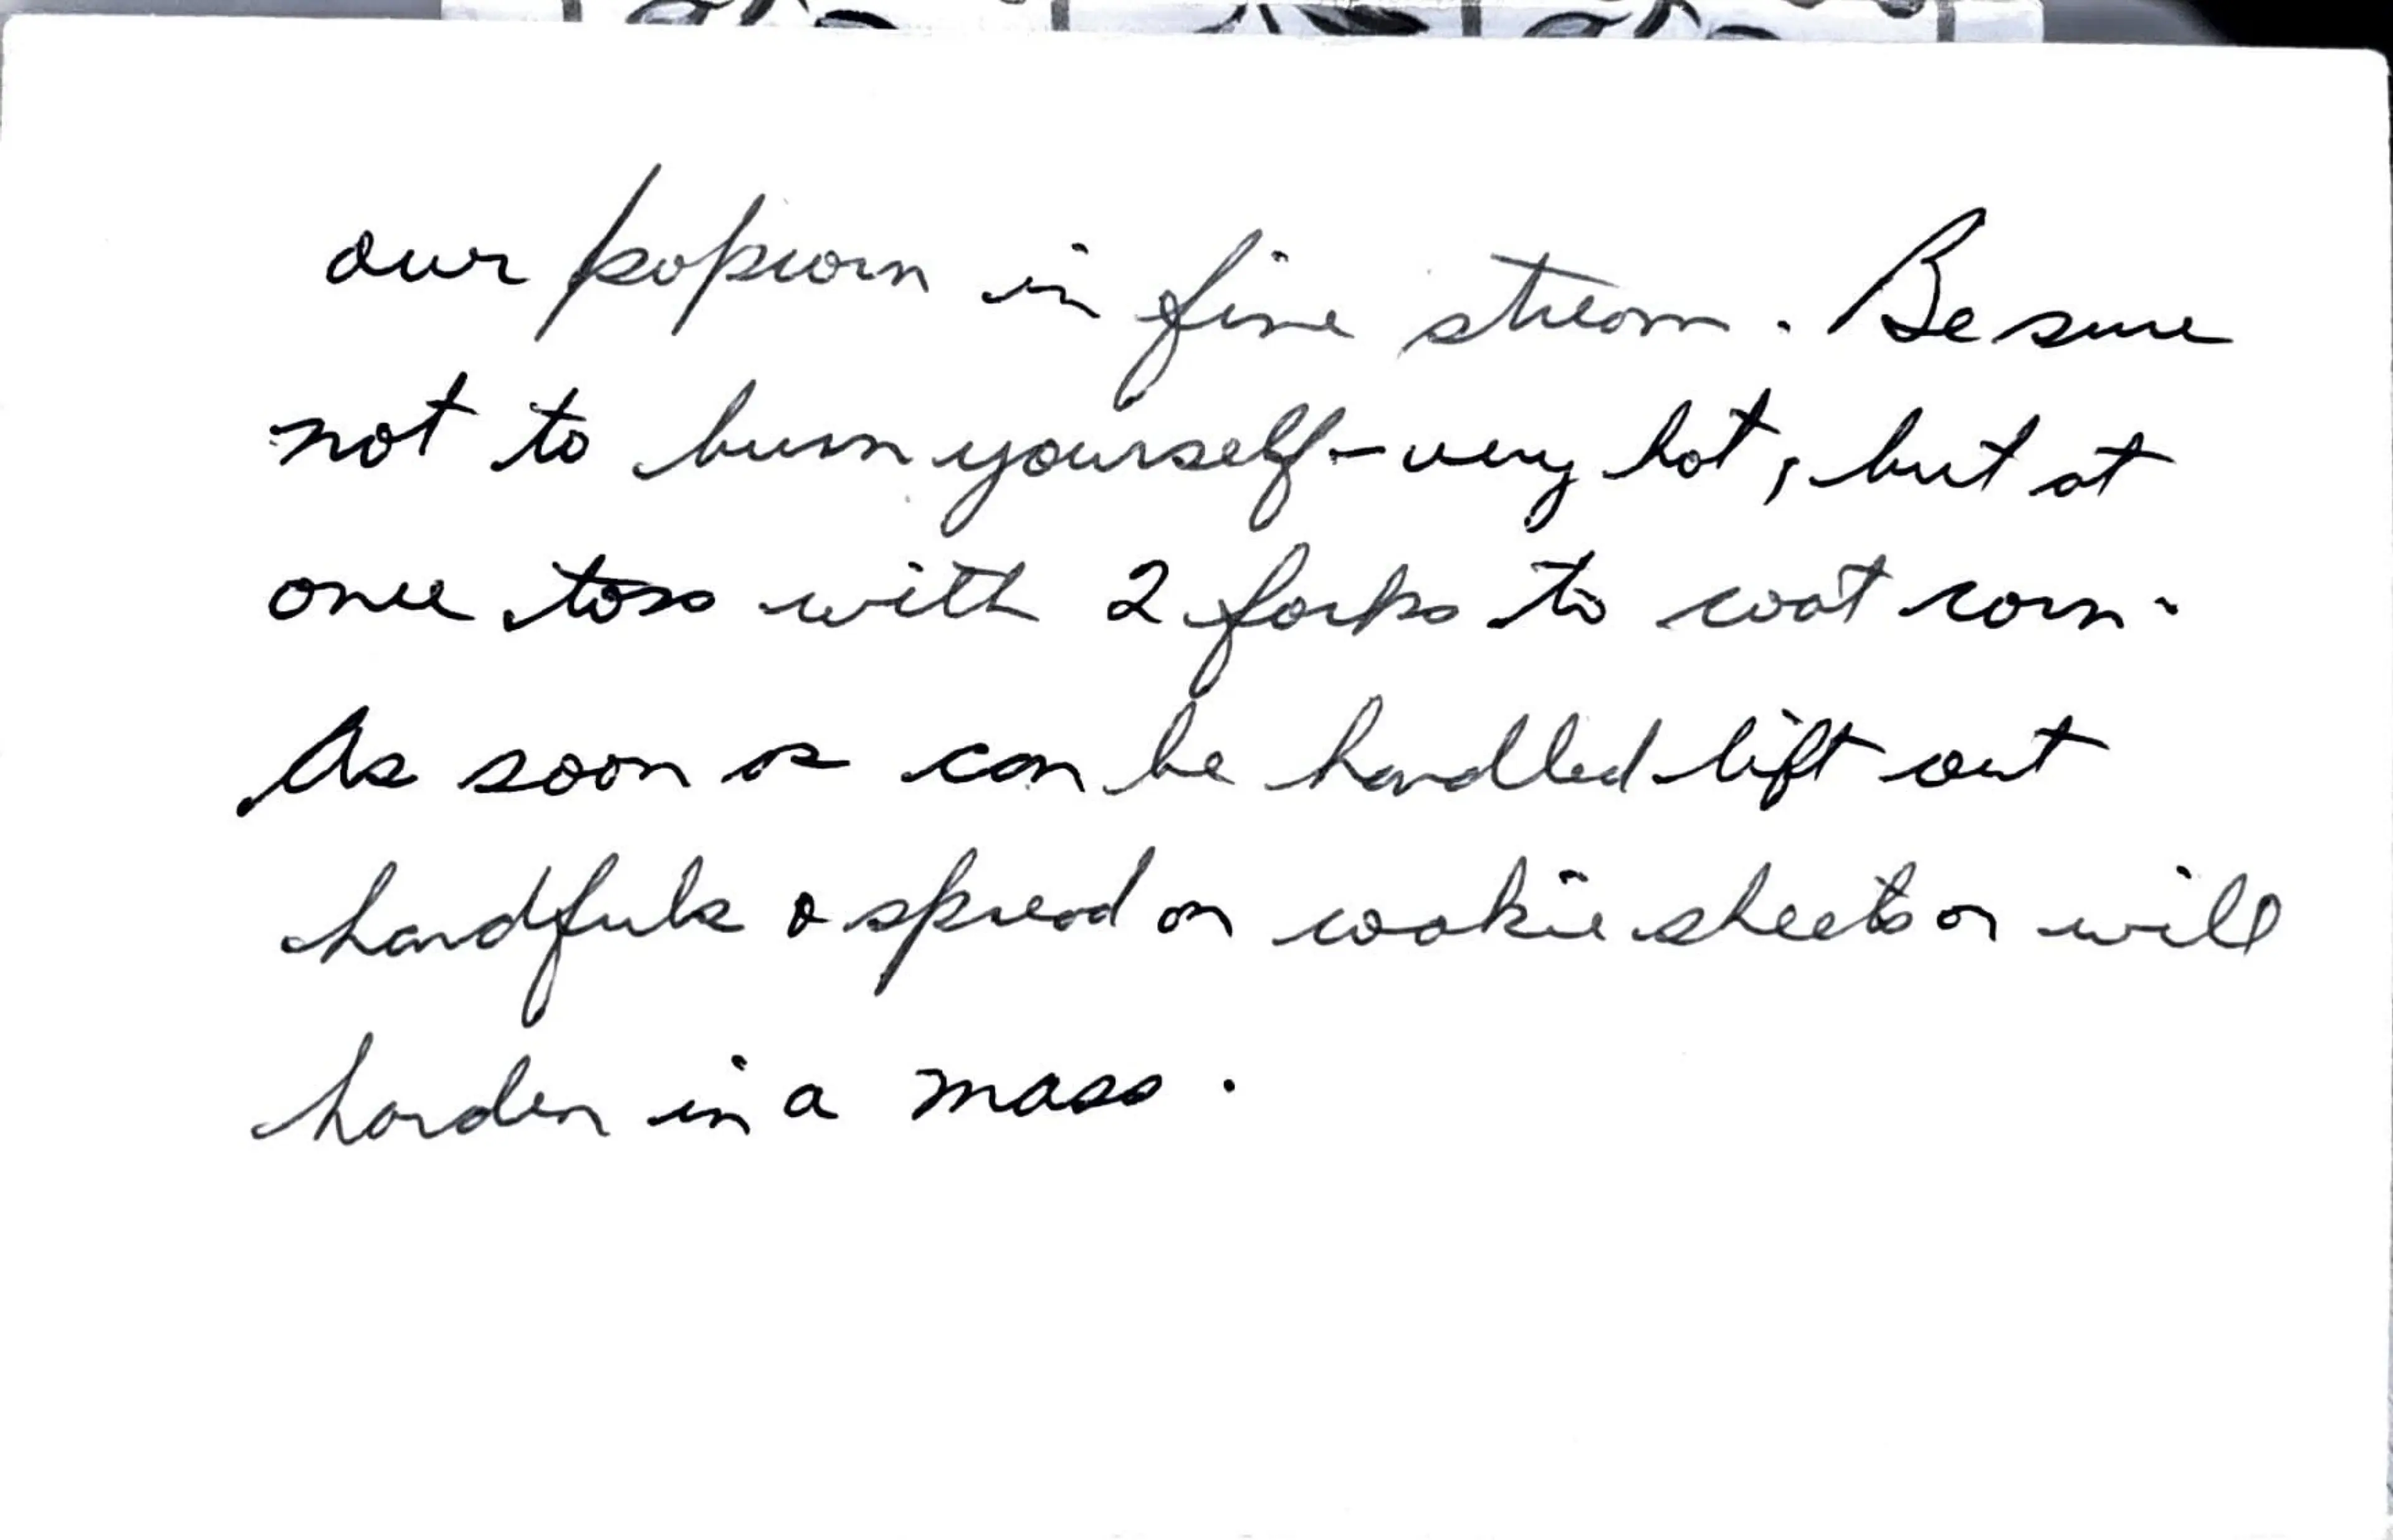 our popcorn in fine stream. Be sure
not to burn yourself - very hot, but at
once toss with 2 forks to coat corn.
As soon as can be handled lift out
handfuls & spread on cookie sheets or will
harden in a mass.